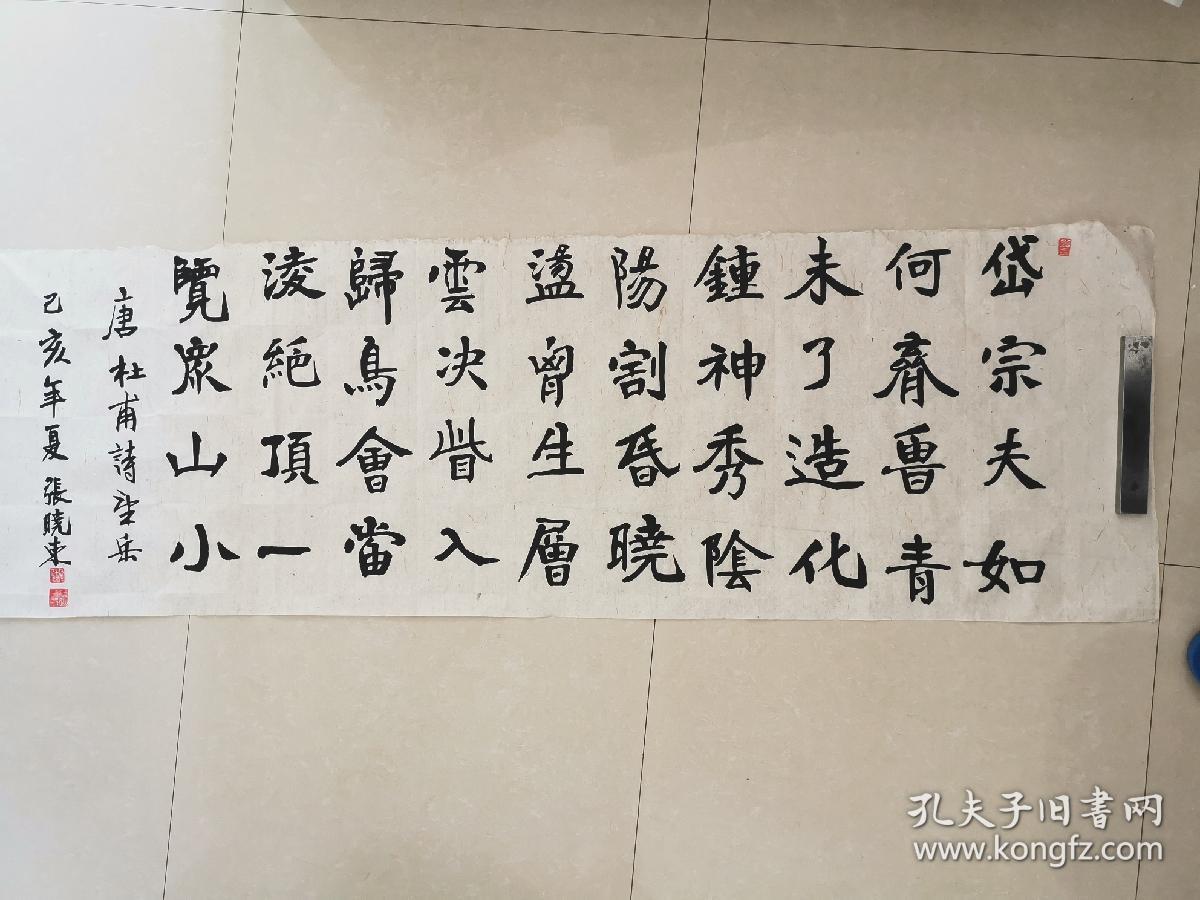 岱宗夫如
何齊魯青
未了造化
鍾神秀陰
陽割昏曉
盪胷生層
雲決眥入
歸鳥會當
凌絕頂一
覽眾山小
唐杜甫詩望岳
己亥年夏張曉東
孔夫子旧书网
www.kongfz.com